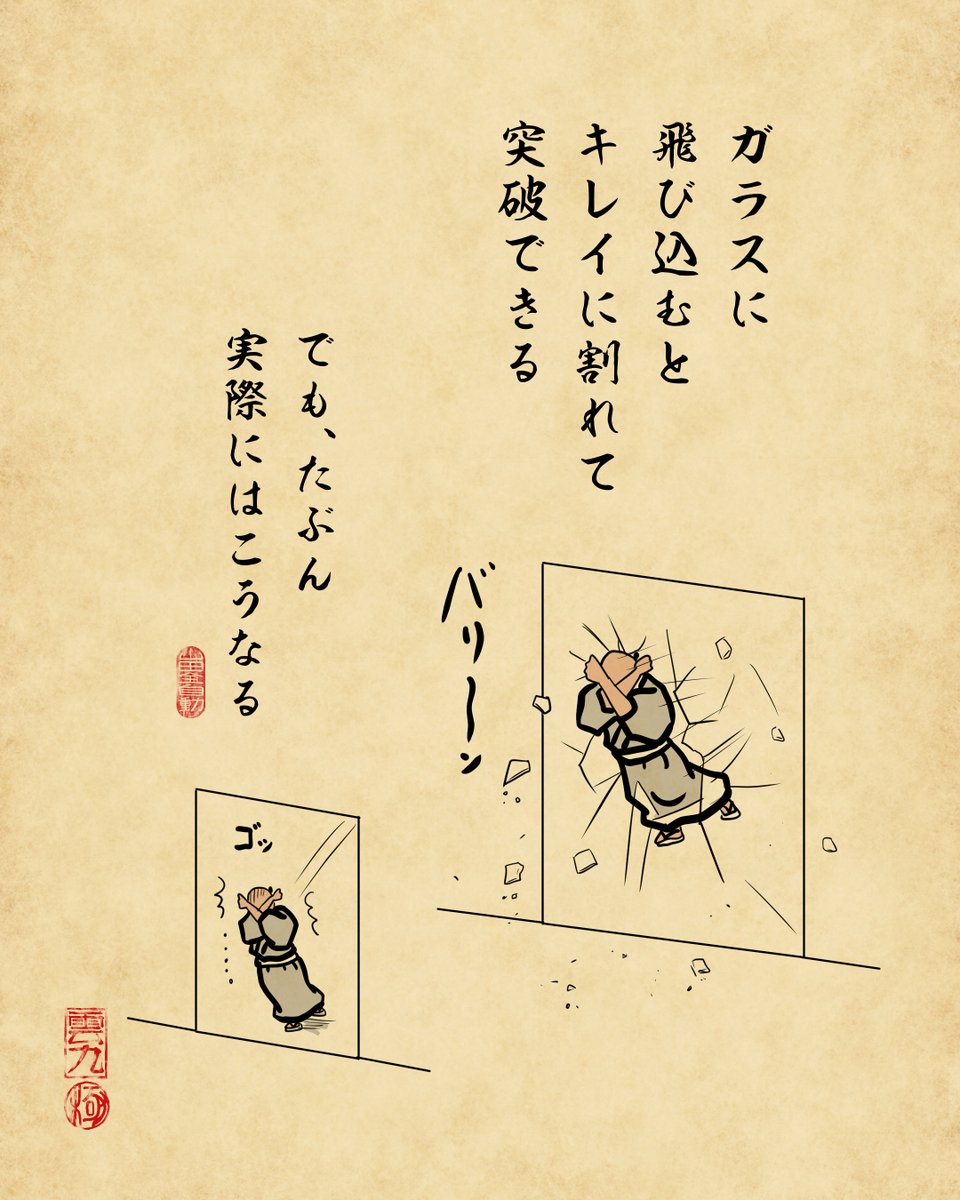 ガラスに
飛び込むと
キレイに割れて
突破できる
バリーン
でも、たぶん
実際にはこうなる
ゴッ
雲九
極